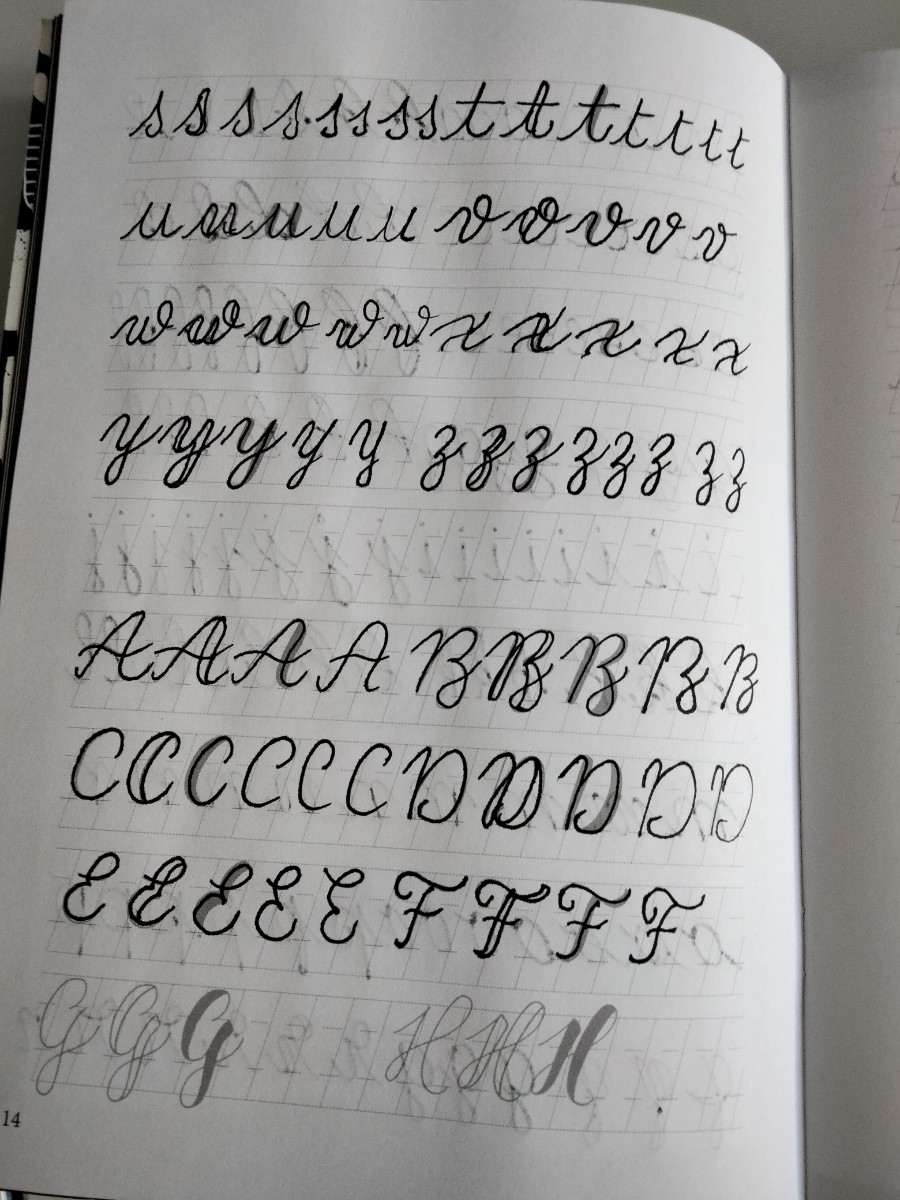 s s s s s s s s t t t t t t t
u u u u u v v v v v
w w w w w x x x x x
y y y y y z z z z z z z z
A A A A B B B B B
C C C C C C D D D D D
E E E E E F F F F
G G G H H H
14